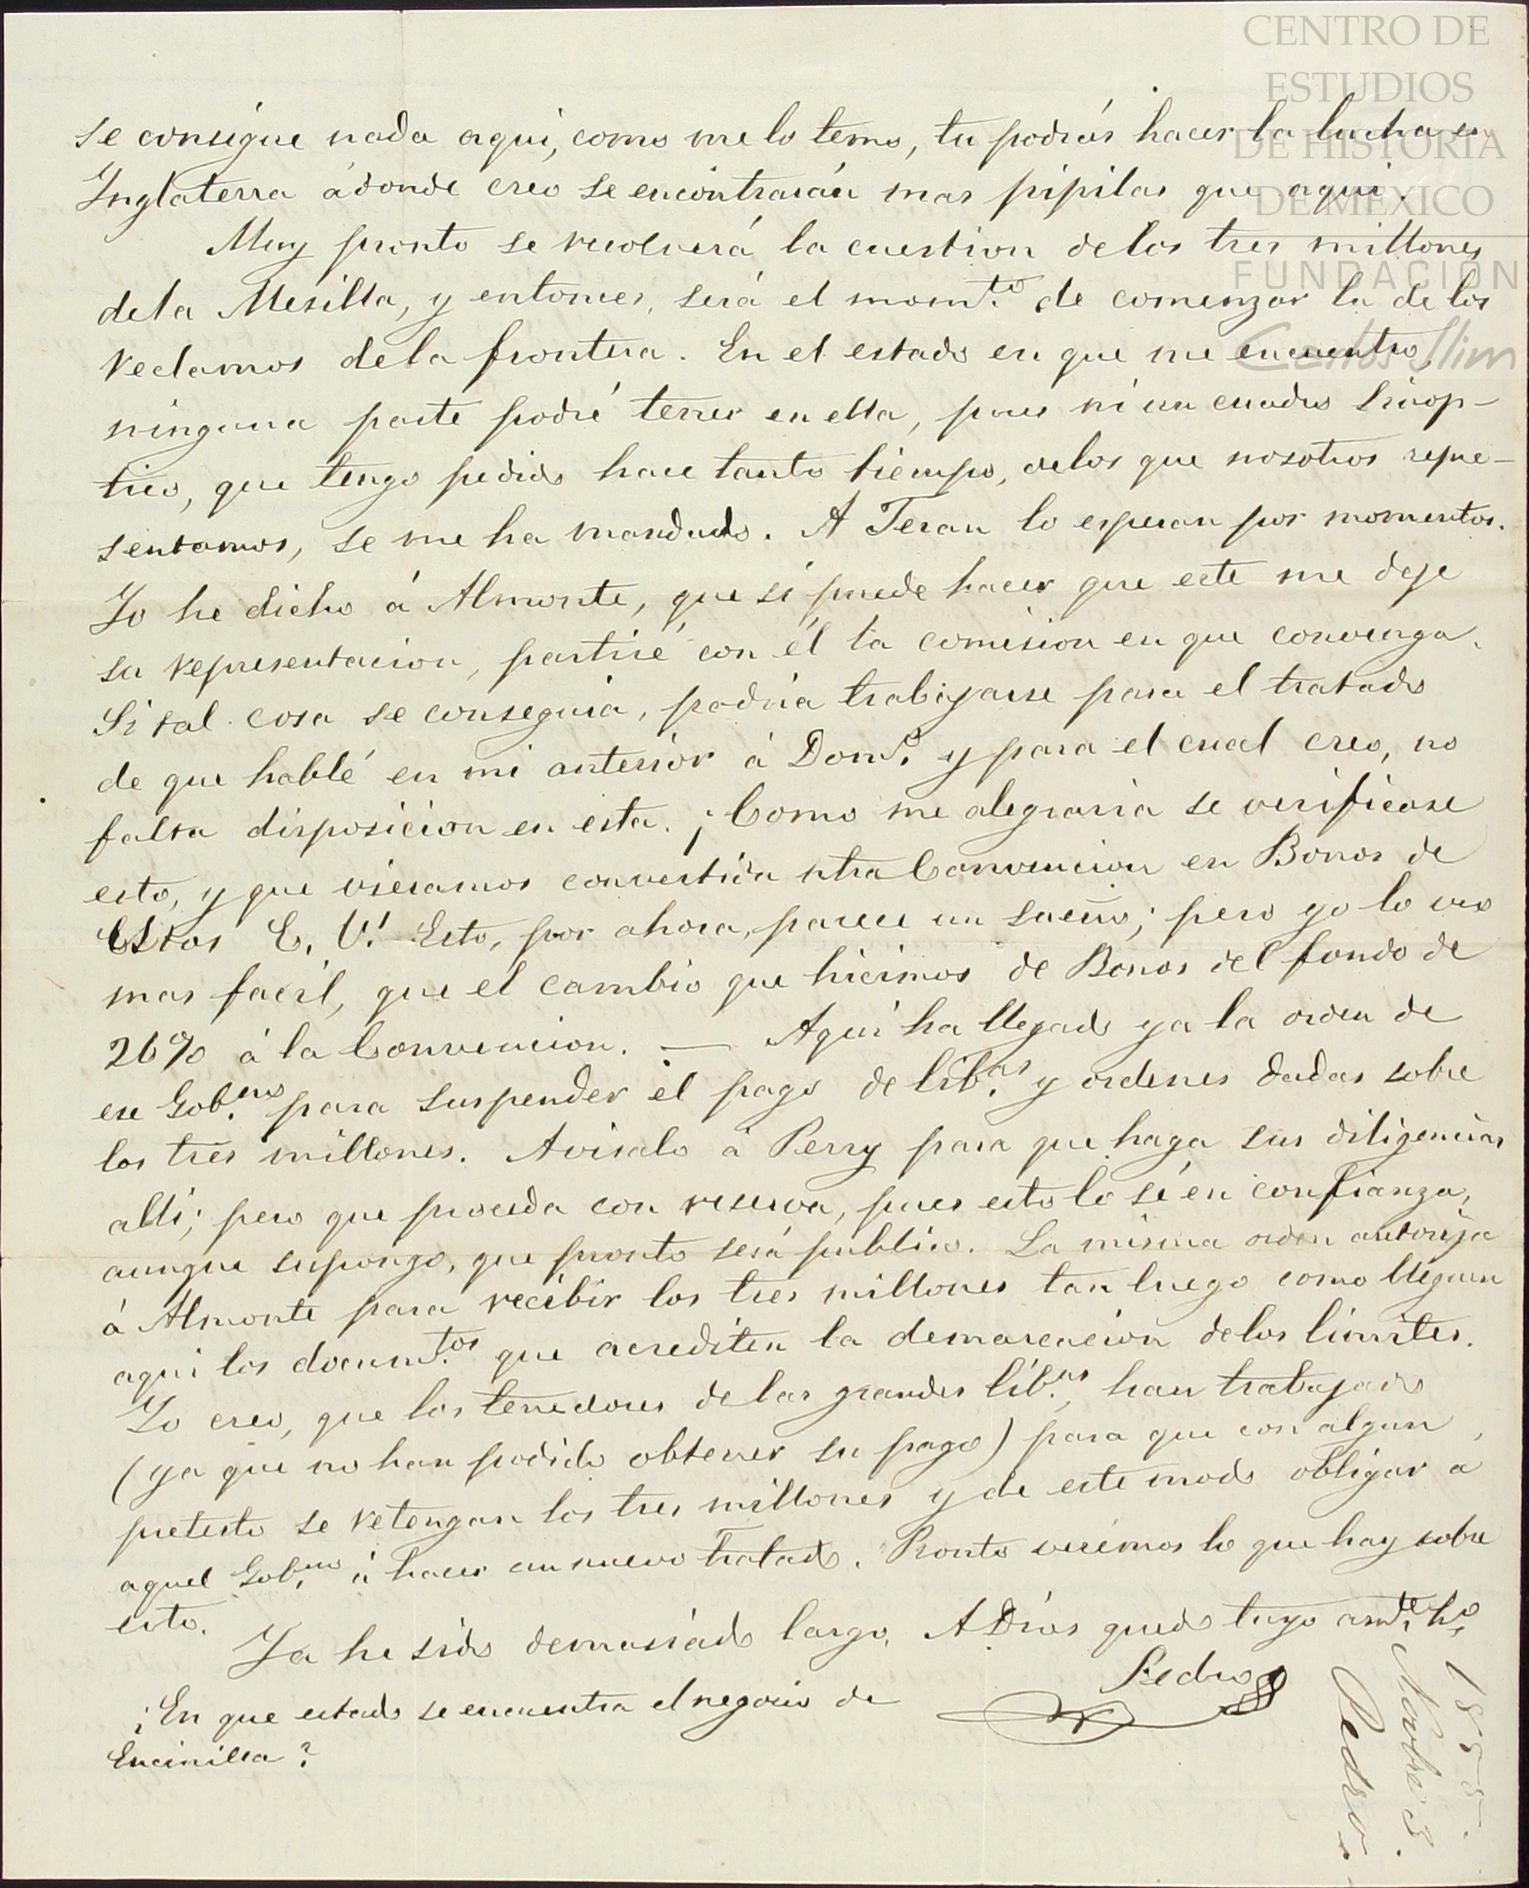 se consigue nada aqui, como me lo temo, tu podrás hacer la lucha en
Inglaterra ádonde creo se encontrarán mas pipilas que aqui.
Muy pronto se resolverá la cuestion de los tres millones
de la Mesilla, y entonces, será el momto. de comenzar la de los
reclamos de la frontera. En el estado en que me encuentro,
ninguna parte podré tener en ella, pues ni un cuadro Sinop-
tico, que tengo pedido hace tanto tiempo, de los que nosotros repre-
sentamos, se me ha mandado. A Teran lo esperan por momentos.
Yo he dicho á Almonte, que si puede hacer que este me deje
su representacion, partiré con él la comision en que convenga.
Si tal cosa se conseguia, podria trabajarse para el tratado
de que hablé en mi anterior á Domo. y para el cual creo, no
falta disposicion en esta. ¡Como me alegraria se verificase
esto, y que vieramos convertida ntra Convencion en Bonos de
Estos E. U.! Esto, por ahora, parece un sueño; pero yo lo veo
mas facil, que el cambio que hicimos de Bonos del fondo de
26% á la Convencion. — Aquí ha llegado ya la orden de
ese Gobno. para suspender el pago de libas. y ordenes dadas sobre
los tres millones. Avisalo á Perry para que haga sus diligencias
allí; pero que proceda con reserva, pues esto lo sé en confianza,
aunque supongo, que pronto será publico. La misma orden autoriza
á Almonte para recibir los tres millones tan luego como lleguen
aqui los documtos. que acrediten la demarcacion de los limites.
Yo creo, que los tenedores de las grandes libas. han trabajado
(ya que no han podido obtener su pago) para que con algun
pretesto se retengan los tres millones y de este modo obligar a
aquel Gobno. á hacer un nuevo tratado. Pronto verémos lo que hay sobre
esto.
Ya he sido demasiado largo. A Dios quedo tuyo amte. ho.
Pedro
¿En que estado se encuentra el negocio de
Encinilla?
1855.
Novbre 3.
Pedro.
CENTRO DE
ESTUDIOS
DE HISTORIA
DE MEXICO
FUNDACIÓN
Carlos Slim